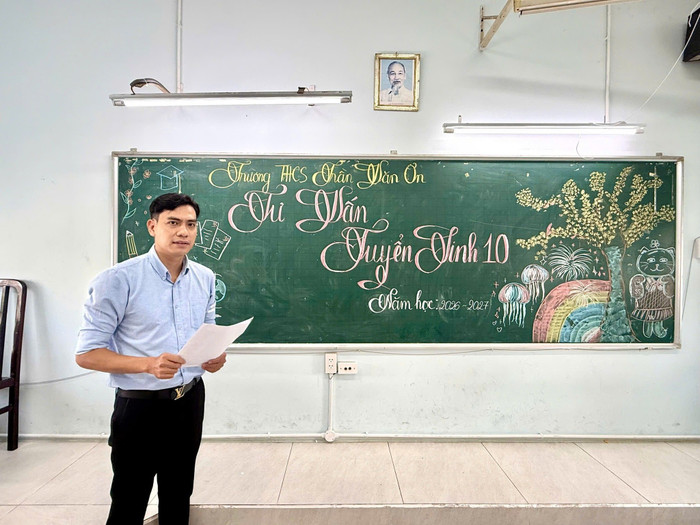 Trường THCS Trần Văn Ơn
Thi Vấn
Tuyển Sinh 10
Năm học: 2026-2027